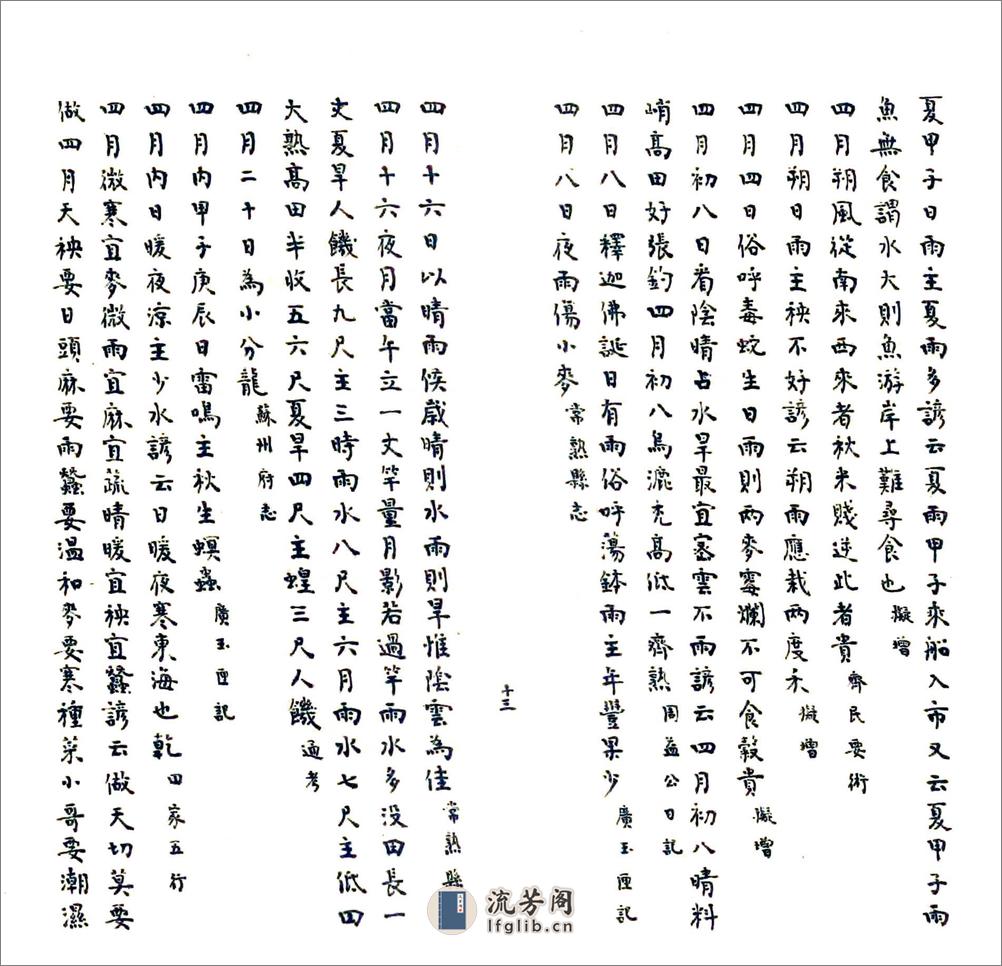 夏甲子日雨主夏雨多諺云夏雨甲子乘船入市又云夏甲子雨
魚無食謂水大則魚游岸上難尋食也擬增
四月朔風從南來西來者秋米賤逆此者貴齊民要術
四月朔日雨主秧不好諺云朔雨應栽兩度禾擬增
四月四日俗呼毒蛇生日雨則兩麥霉爛不可食穀貴擬增
四月初八日看陰晴占水旱最宜密雲不雨諺云四月初八晴料
峭高田好張釣四月初八烏漉禿高低一齊熟周益公日記
四月八日釋迦佛誕日有雨俗呼蕩鉢雨主年豐果少廣玉匣記
四月八日夜雨傷小麥常熟縣志
十三
四月十六日以晴雨候歲晴則水雨則旱惟陰雲為佳常熟縣
四月十六夜月當午立一丈竿量月影若過竿雨水多没田長一
丈夏旱人饑長九尺主三時雨水八尺主六月雨水七尺主低田
大熟高田半收五六尺夏旱四尺主蝗三尺人饑通考
四月二十日為小分龍蘇州府志
四月內甲子庚辰日雷鳴主秋生螟蟲廣玉匣記
四月內日暖夜涼主少水諺云日暖夜寒東海也乾田家五行
四月微寒宜麥微雨宜麻宜蔬晴暖宜秧宜蠶諺云做天切莫要
做四月天秧要日頭麻要雨蠶要溫和麥要寒種菜小哥要潮濕
流芳阁
lfglib.cn